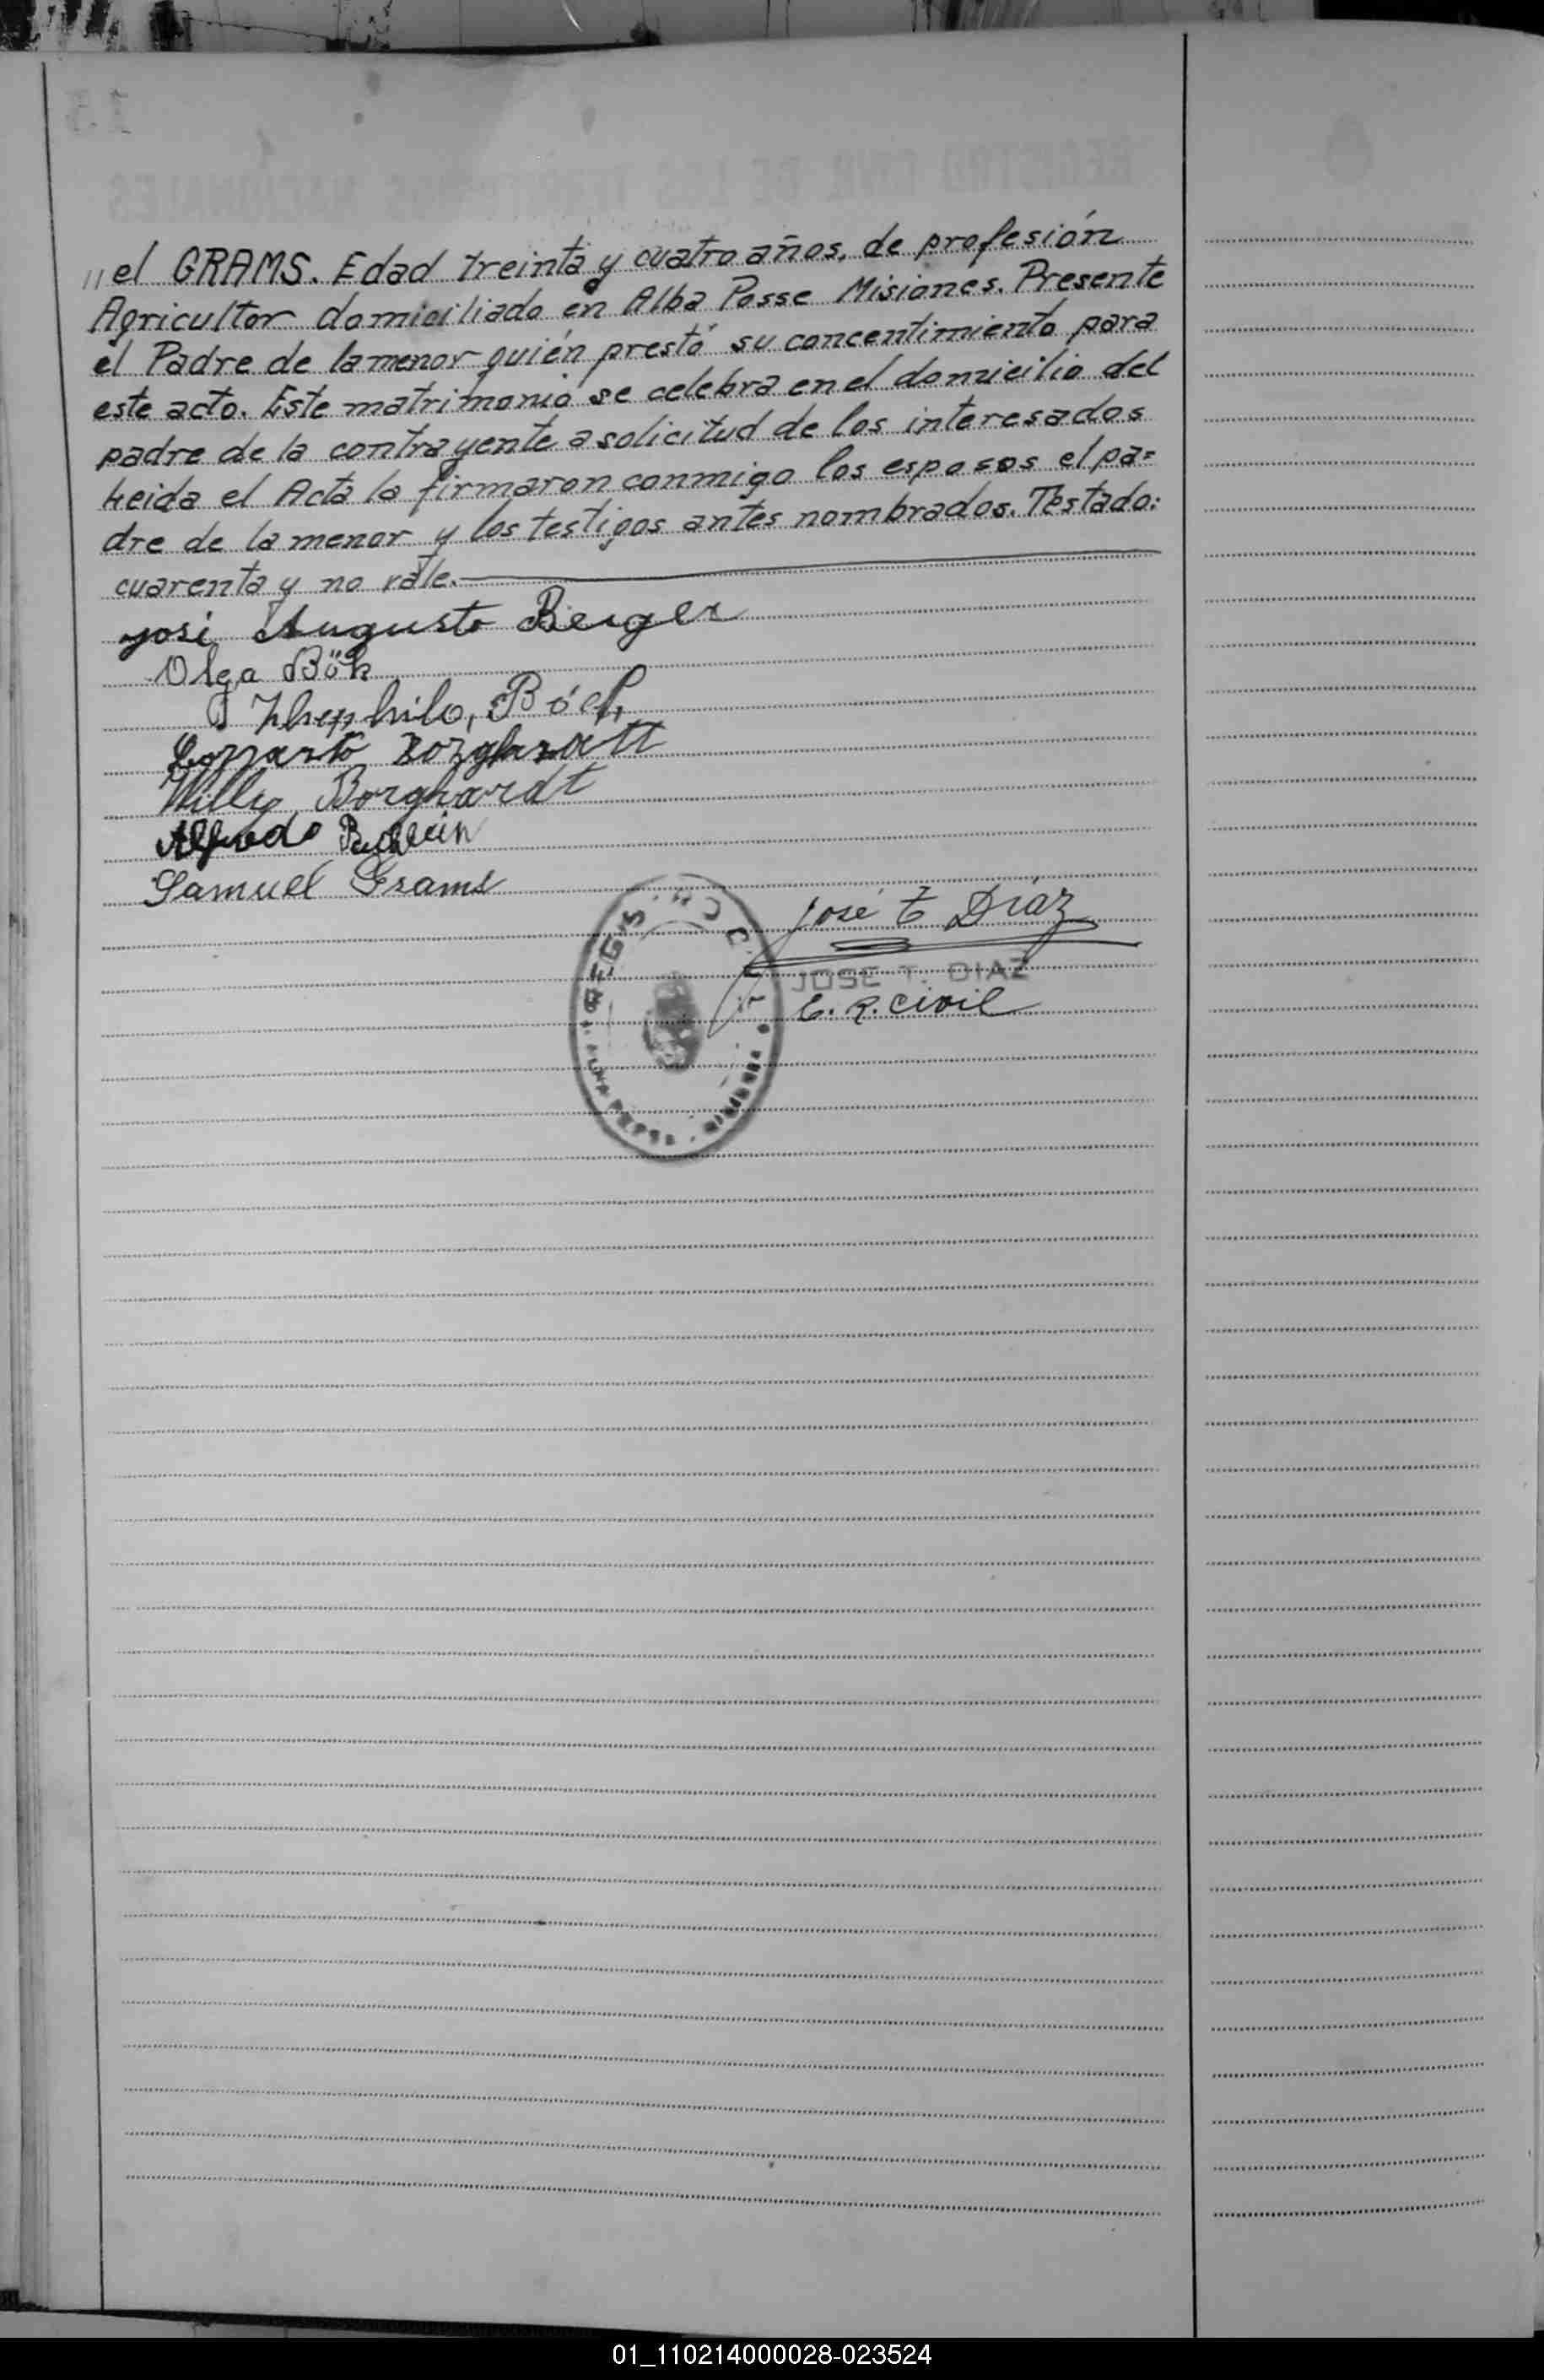 "el GRAMS. Edad treinta y cuatro años, de profesión
Agricultor domiciliado en Alba Posse Misiones. Presente
el Padre de la menor quién prestó su concentimiento para
este acto. Este matrimonio se celebra en el domicilio del
padre de la contrayente a solicitud de los interesados
Leida el Acta la firmaron conmigo los esposos el pa=
dre de la menor y los testigos antes nombrados. Testado:
cuarenta y no vale.
José Augusto Berger
Olga Bök
Böck
Borghardt
Willy Borghardt
Alfredo
Samuel Grams
José T Diaz
JOSE T. DIAZ
E. R. Civil
REGIS
01_110214000028-023524